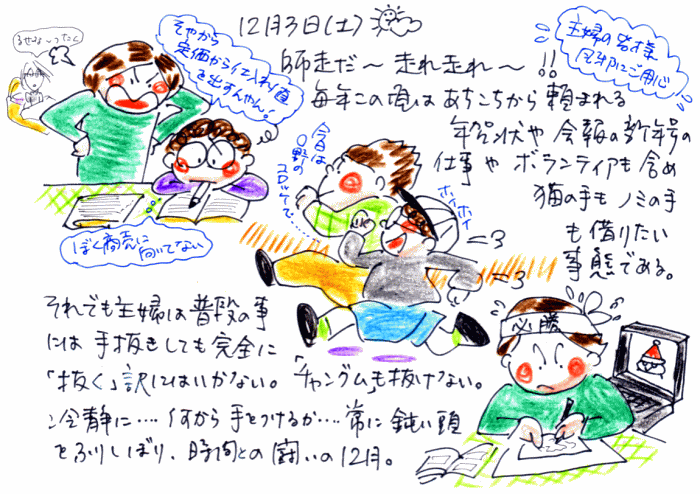 12月3日(土)
師走だ〜 走れ走れ〜!!
毎年この頃はあちこちから頼まれる
年賀状や会報の新年号の
仕事やボランティアも含め
猫の手もノミの手
も借りたい
事態である。
主婦の皆様
にご用心
うるせな〜ったく
そやから
定価から仕入れ値
を出すんやん!
ぼく商売に
向いてない
今日は
コロッケで‥‥‥
ホイホイ
必勝
それでも主婦は普段の事
には手抜きしても完全に
「抜く」訳にはいかない。「チャングム」も抜けない。
冷静に‥‥何から手をつけるか‥‥常に鈍い頭
をふりしぼり、時間との闘いの12月。